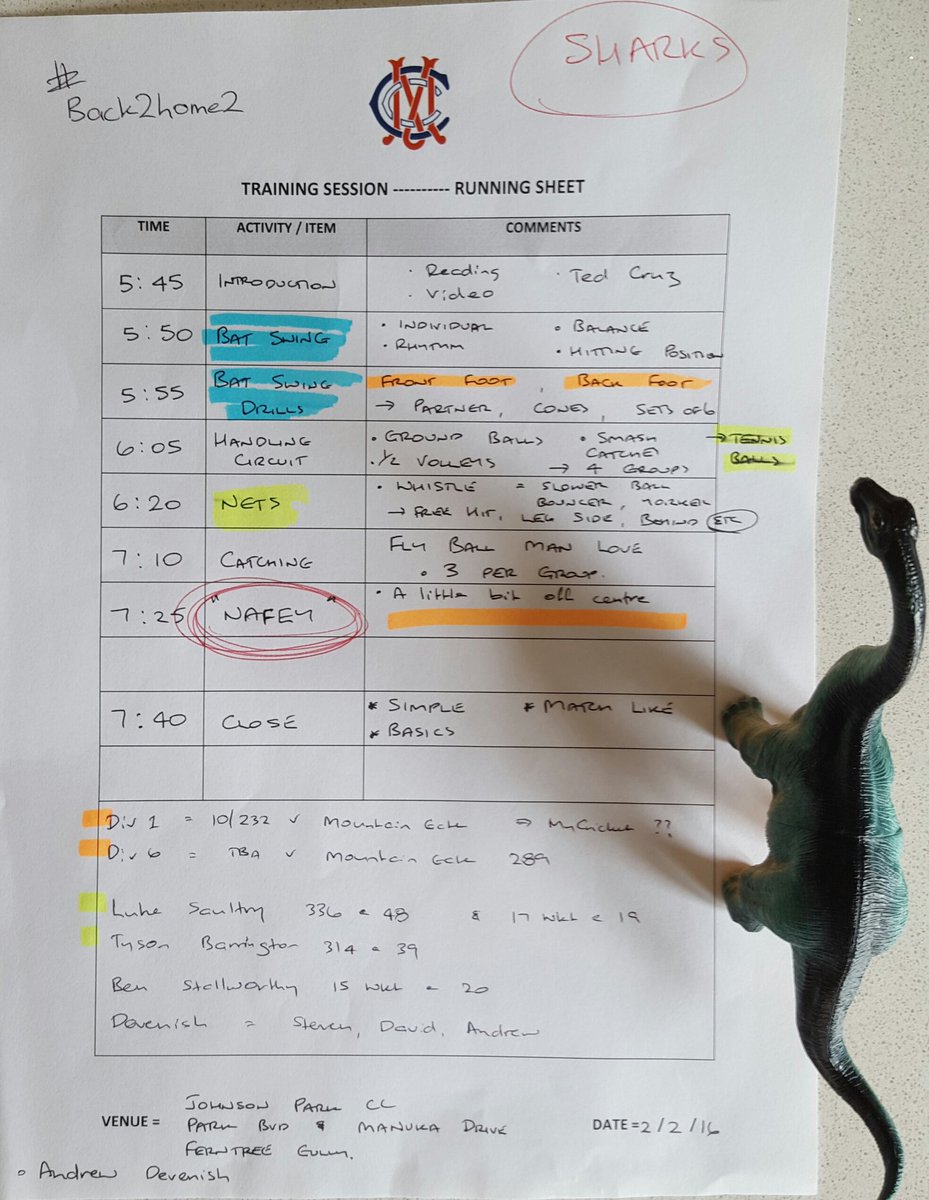 #
Back2home2
MCC
SHARKS
TRAINING SESSION ---------- RUNNING SHEET
TIME ACTIVITY / ITEM COMMENTS
5:45 INTRODUCTION · Reading · Ted Cruz
· Video
5:50 BAT SWING • INDIVIDUAL • BALANCE
• RHYTHM • HITTING POSITION
5:55 BAT SWING DRILLS FRONT FOOT, BACK FOOT
→ PARTNER, CONES, SETS OF 6
6:05 HANDLING CIRCUIT • GROUND BALLS • SMASH CATCHES → TENNIS BALLS
• 1/2 VOLLEYS → 4 GROUPS
6:20 NETS • WHISTLE = SLOWER BALL
BOUNCER, YORKER
→ FREE HIT, LEG SIDE, BEHIND ETC
7:10 CATCHING FLY BALL MAN LOVE
• 3 PER GROUP.
7:25 "NAFEY" • A little bit off centre
7:40 CLOSE * SIMPLE * MATCH LIKE
* BASICS
Div 1 = 10/232 v Mountain Gate ⇒ MyCricket ??
Div 6 = TBA v Mountain Gate 289
Luke Saultry 336 @ 48 & 17 wkt @ 19
Tyson Barrington 314 @ 39
Ben Stallworthy 15 wkt @ 20
Devenish = Steven, David, Andrew
VENUE = JOHNSON PARK CC
PARK BVD & MANUKA DRIVE
FERNTREE GULLY.
DATE = 2/2/16
• Andrew Devenish